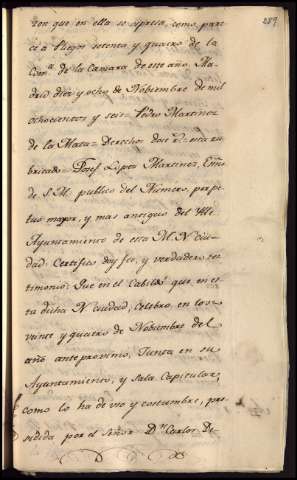 289
zon que en ella se expresa, como, pare
ce a Pliego setenta, y quatro de la
Com.ª de la Camara de este año. Ma
drid diez y ocho de Nobiembre de mil
ochocientos y seis = Pedro Martinez
de la Mata = Derechos doce r.s = esta ru
bricado = Josef Lopez Martinez, Essno
de S. M. publico del Numero, perpe
tuo mayor, y mas antiguo del Ylle
Ayuntamiento de esta M. N. ciu
dad: Certifico doy fee, y verdadero tes
timonio: Que en el Cabildo que en es
ta dicha N. ciudad, celebro, en los
veinte y quatro de Nobiembre del
año anteproximo, Junta en su
Ayuntamiento, y Sala Capitular,
como lo ha de uso y costumbre, pre
sidida por el Señor D.n Carlos De